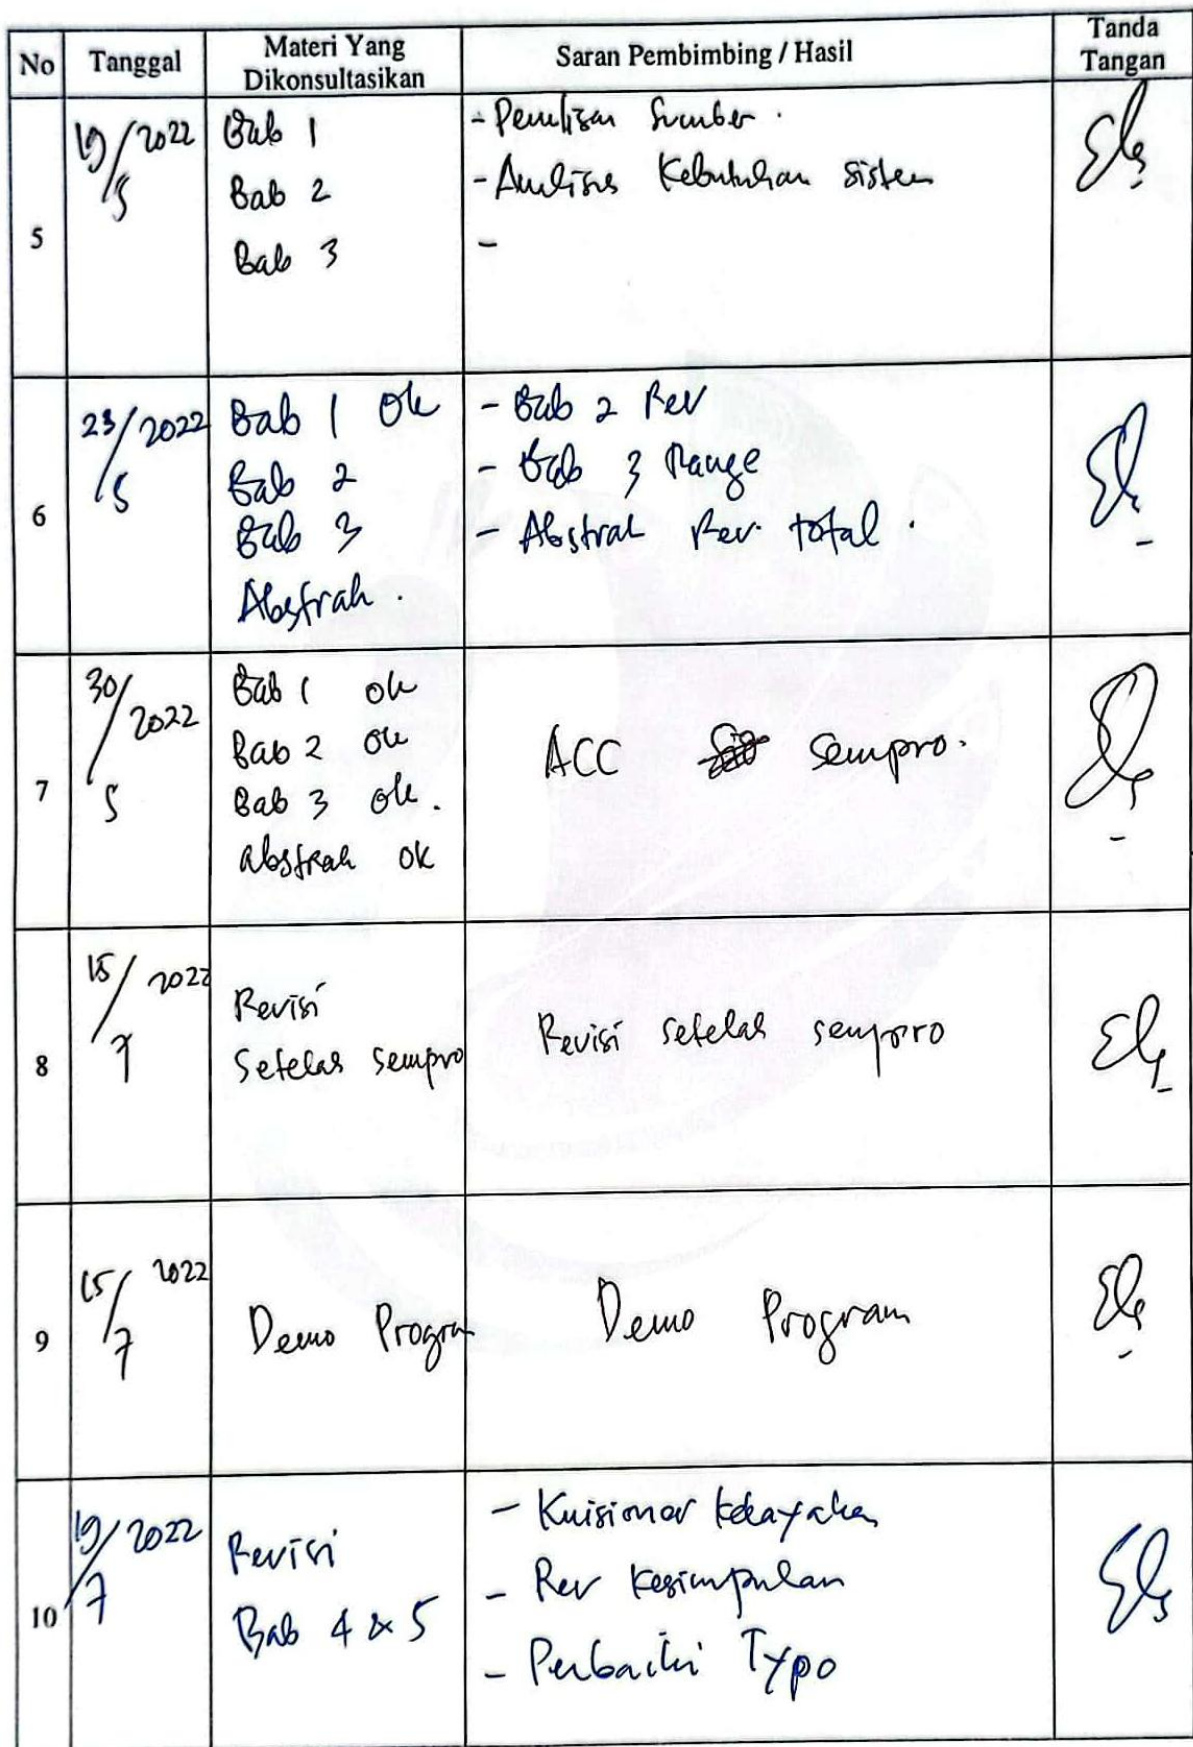 No Tanggal Materi Yang Dikonsultasikan Saran Pembimbing / Hasil Tanda Tangan
5 19/5 2022
Bab 1
Bab 2
Bab 3
- Penulisan Sumber.
- Analisis Kebutuhan sistem
-
6 23/5 2022
Bab 1 Ok
Bab 2
Bab 3
Abstrak.
- Bab 2 Rev
- Bab 3 Range
- Abstrak Rev total.
7 30/5 2022
Bab 1 ok
Bab 2 ok
Bab 3 ok.
abstrak ok
ACC Sempro.
8 15/7 2022
Revisi
Setelah sempro
Revisi setelah sempro
9 15/7 2022
Demo Program
Demo Program
10 19/7 2022
Revisi
Bab 4 & 5
- Kuisioner kelayakan
- Rev Kesimpulan
- Perbaiki Typo